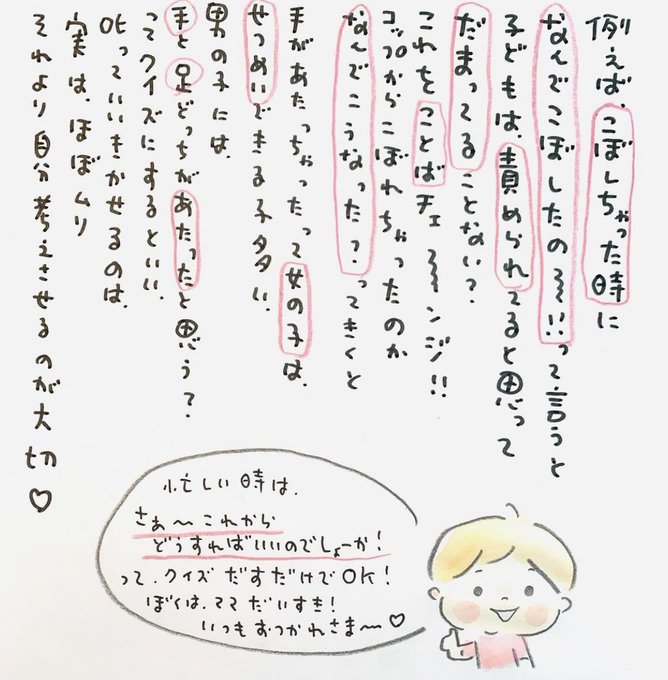 例えば、こぼしちゃった時に
なんでこぼしたの〜〜!!って言うと
子どもは、責められてると思って
だまってることない?
これをことばチェ〜〜ンジ!!
コップからこぼれちゃったのか
なんでこうなった?ってきくと
手があたっちゃったって女の子は、
せつめいできる子多い。
男の子には、
手と足どっちがあたったと思う?
ってクイズにするといい。
OKっていいきかせるのは、
実は、ほぼムリ
それより自分考えさせるのが大切♡
忙しい時は、
さぁ〜これから
どうすればいいのでしょーか!
って、クイズだすだけでOK!
ぼくは、ママだいすき!
いつもおつかれさま〜♡